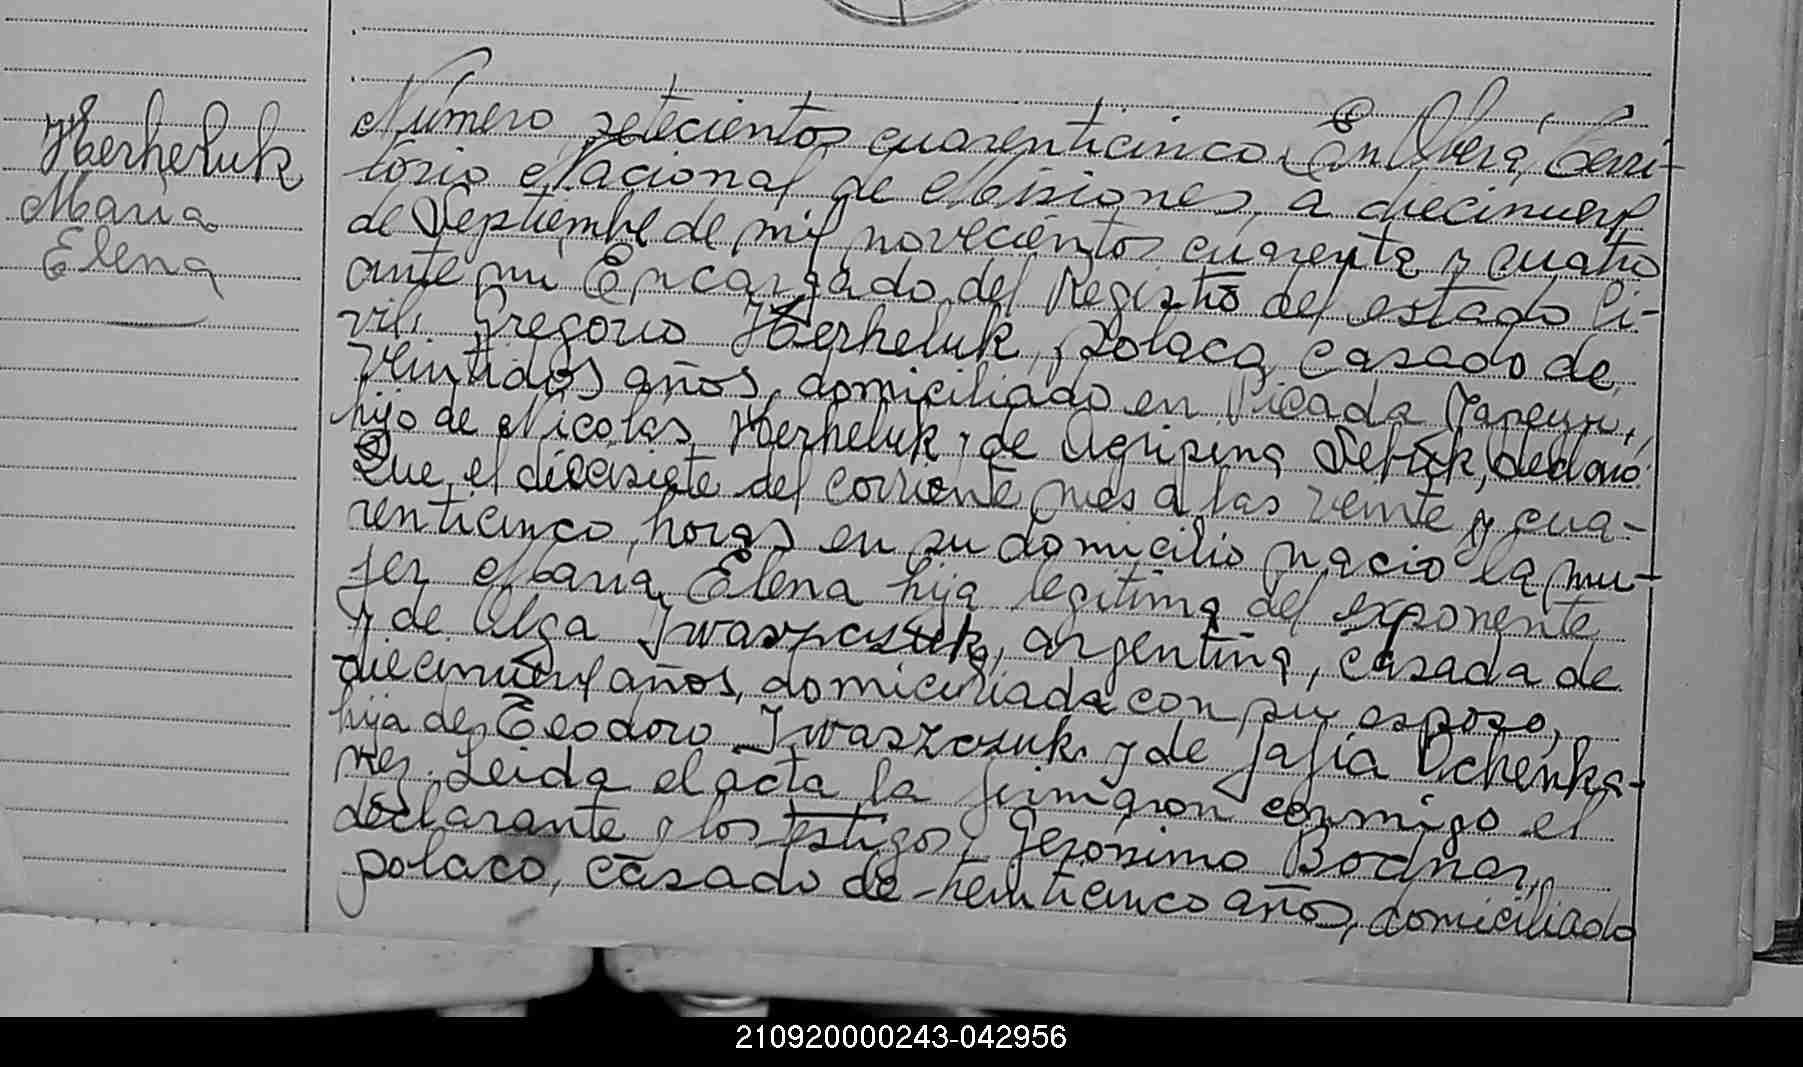 Herheluk
María
Elena
Número setecientos cuarenticinco. En Oberá, Terri-
torio Nacional de Misiones, a diecinueve
de Septiembre de mil novecientos cuarenta y cuatro
ante mi Encargado del Registro del estado Ci-
vil, Gregorio Herheluk, polaco, casado de
veintidos años, domiciliado en Picada Yapeyu,
hijo de Nicolas Herheluk y de Agripina declaró:
Que el diecisiete del corriente mes a las veinte y cua-
renticinco horas en su domicilio nacio la mu-
jer Maria Elena hija legitima del exponente
y de Olga Iwaszczuk, argentina, casada de
diecinueve años, domiciliada con su esposo,
hija de Teodoro Iwaszczuk y de Ochenka-
Leida el acta la firmaron conmigo el
declarante y los testigos, Gerónimo Bodnar,
polaco, casado de veinticinco años, domiciliado
210920000243-042956